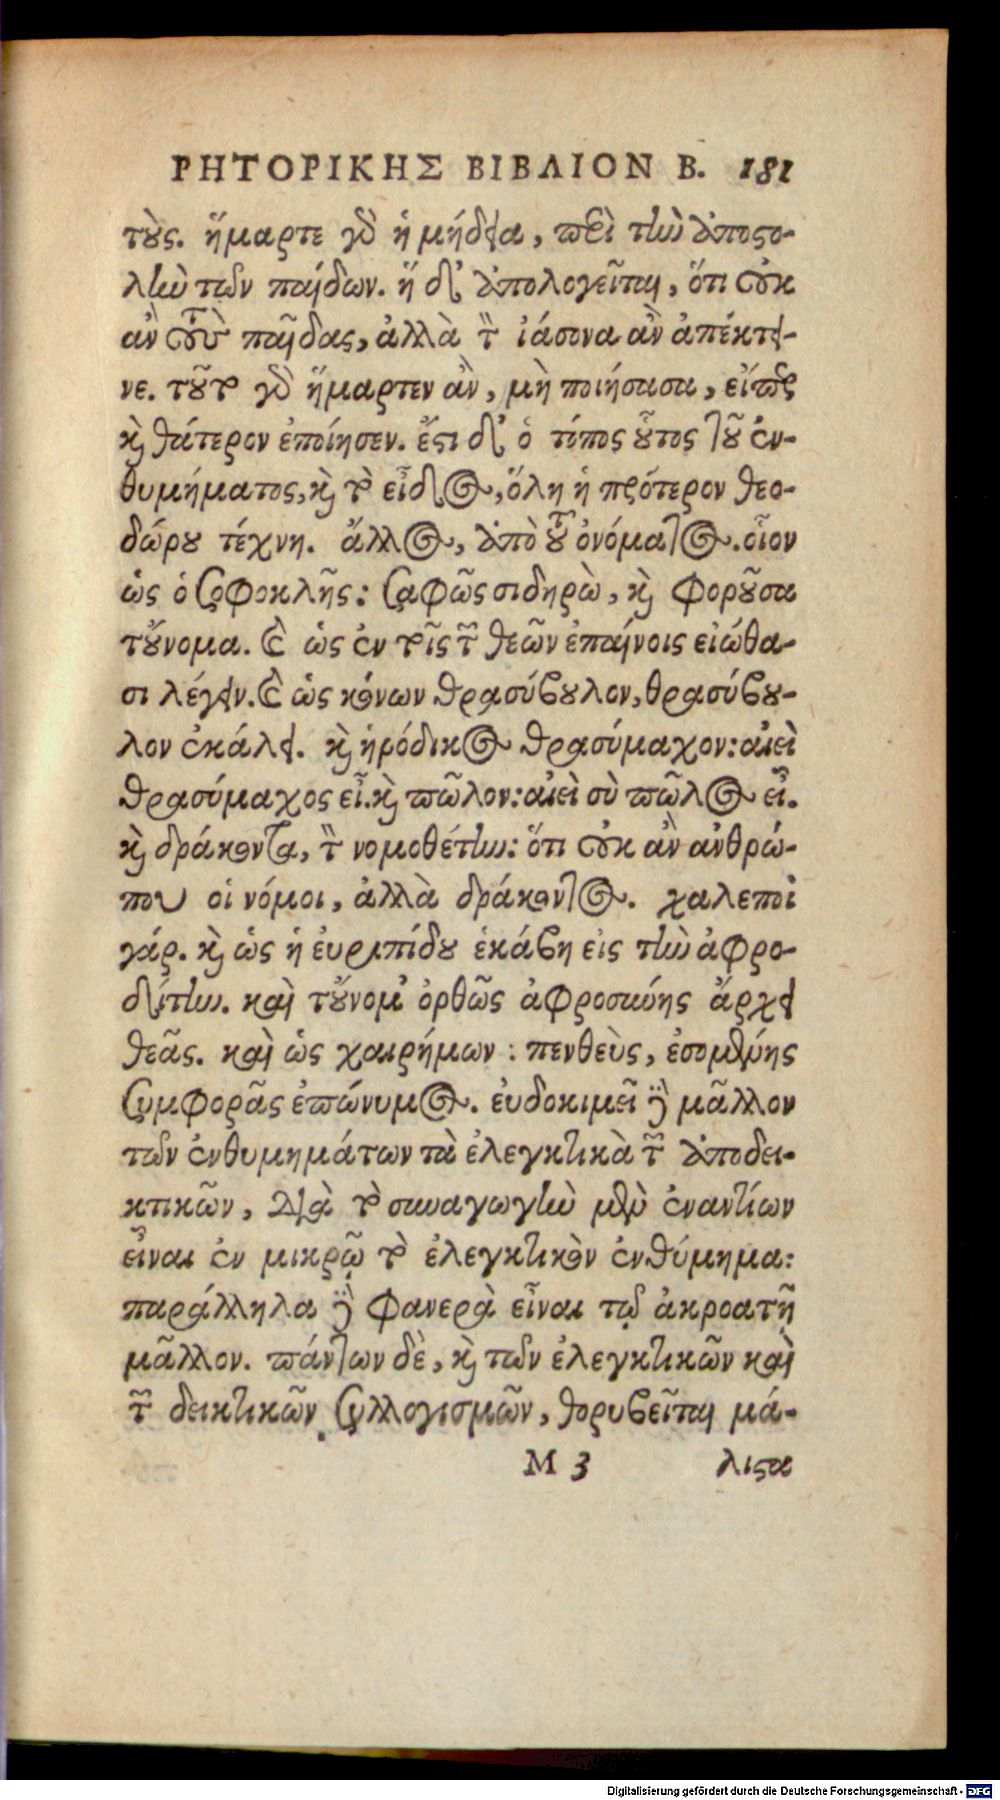 ΡΗΤΟΡΙΚΗΣ ΒΙΒΛΙΟΝ Β. 181
τούς. ἥμαρτε γὰρ ἡ μήδεια, περὶ τὴν ἀποστο-
λὴν τῶν παίδων. ἡ δ' ἀπολογεῖται, ὅτι οὐκ
ἂν τοὺς παῖδας, ἀλλὰ τὸν ἰάσονα ἂν ἀπέκτει-
νε. τοῦτο γὰρ ἥμαρτεν ἂν, μὴ ποιήσασα, εἴπερ
καὶ θάτερον ἐποίησεν. ἔστι δ' ὁ τόπος οὗτος τοῦ ἐν-
θυμήματος, καὶ τὸ εἶδος, ὅλη ἡ πρότερον θεο-
δώρου τέχνη. ἄλλος, ἀπὸ τοῦ ὀνόματος. οἷον
ὡς ὁ σοφοκλῆς: σαφῶς σιδηρὼ, καὶ φοροῦσα
τοὔνομα. καὶ ὡς ἐν τοῖς τῶν θεῶν ἐπαίνοις εἰώθα-
σι λέγειν. καὶ ὡς κόνων θρασύβουλον, θρασύβου-
λον ἐκάλει. καὶ ἡρόδικος θρασύμαχον: αἰεὶ
θρασύμαχος εἶ. καὶ πῶλον: αἰεὶ σὺ πῶλος εἶ.
καὶ δράκοντα, τὸν νομοθέτην: ὅτι οὐκ ἂν ἀνθρώ-
που οἱ νόμοι, ἀλλὰ δράκοντος. χαλεποὶ
γάρ. καὶ ὡς ἡ ἐυριπίδου ἑκάβη εἰς τὴν ἀφρο-
δίτην. καὶ τοὔνομ' ὀρθῶς ἀφροσύνης ἄρχει
θεᾶς. καὶ ὡς χαιρήμων: πενθεὺς, ἐσομένης
συμφορᾶς ἐπώνυμος. ἐυδοκιμεῖ δὲ μᾶλλον
τῶν ἐνθυμημάτων τὰ ἐλεγκτικὰ τῶν ἀποδει-
κτικῶν, διὰ τὸ συναγωγὴν μὲν ἐναντίων
εἶναι ἐν μικρῷ τὸ ἐλεγκτικὸν ἐνθύμημα:
παράλληλα δὲ φανερὰ εἶναι τῷ ἀκροατῇ
μᾶλλον. πάντων δὲ, καὶ τῶν ἐλεγκτικῶν καὶ
τῶν δεικτικῶν συλλογισμῶν, θορυβεῖται μά-
M 3 λιστα
Digitalisierung gefördert durch die Deutsche Forschungsgemeinschaft - DFG